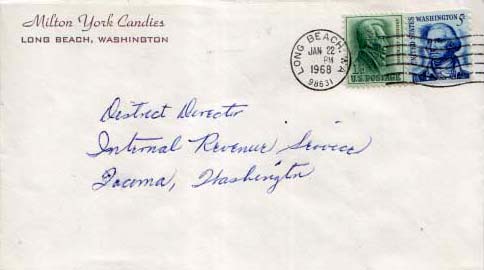 Milton York Candies
LONG BEACH, WASHINGTON
LONG BEACH, WA
JAN 22
PM
1968
98631
1¢
U.S. POSTAGE
WASHINGTON 5¢
UNITED STATES
District Director
Internal Revenue Service
Tacoma, Washington